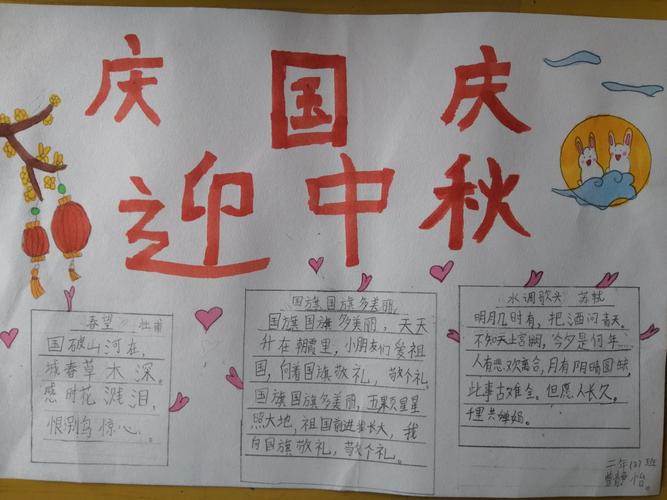 庆国庆
迎中秋
春望 杜甫
国破山河在，
城春草木深。
感时花溅泪，
恨别鸟惊心。
国旗国旗多美丽
国旗国旗多美丽，天天
升在朝霞里，小朋友们爱祖
国，向着国旗敬礼，敬个礼。
国旗国旗多美丽，五颗星星
照大地，祖国前进我长大，我
向国旗敬礼，敬个礼。
水调歌头 苏轼
明月几时有，把酒问青天。
不知天上宫阙，今夕是何年…
人有悲欢离合，月有阴晴圆缺
此事古难全。但愿人长久。
千里共婵娟。
二年 班
静怡。